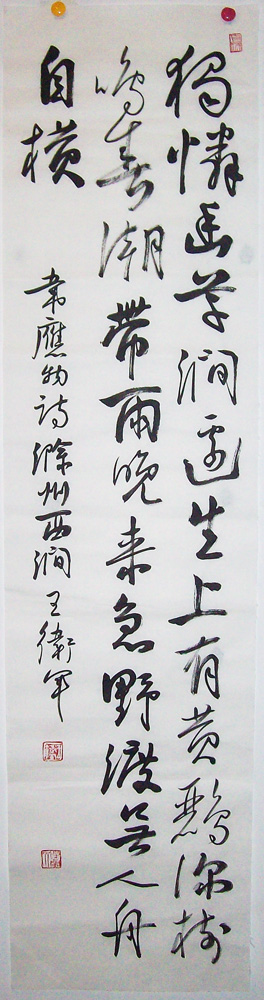 獨憐幽草澗邊生上有黄鸝深樹
鳴春潮帶雨晚来急野渡無人舟
自横
韋應物詩滁州西澗王衛軍